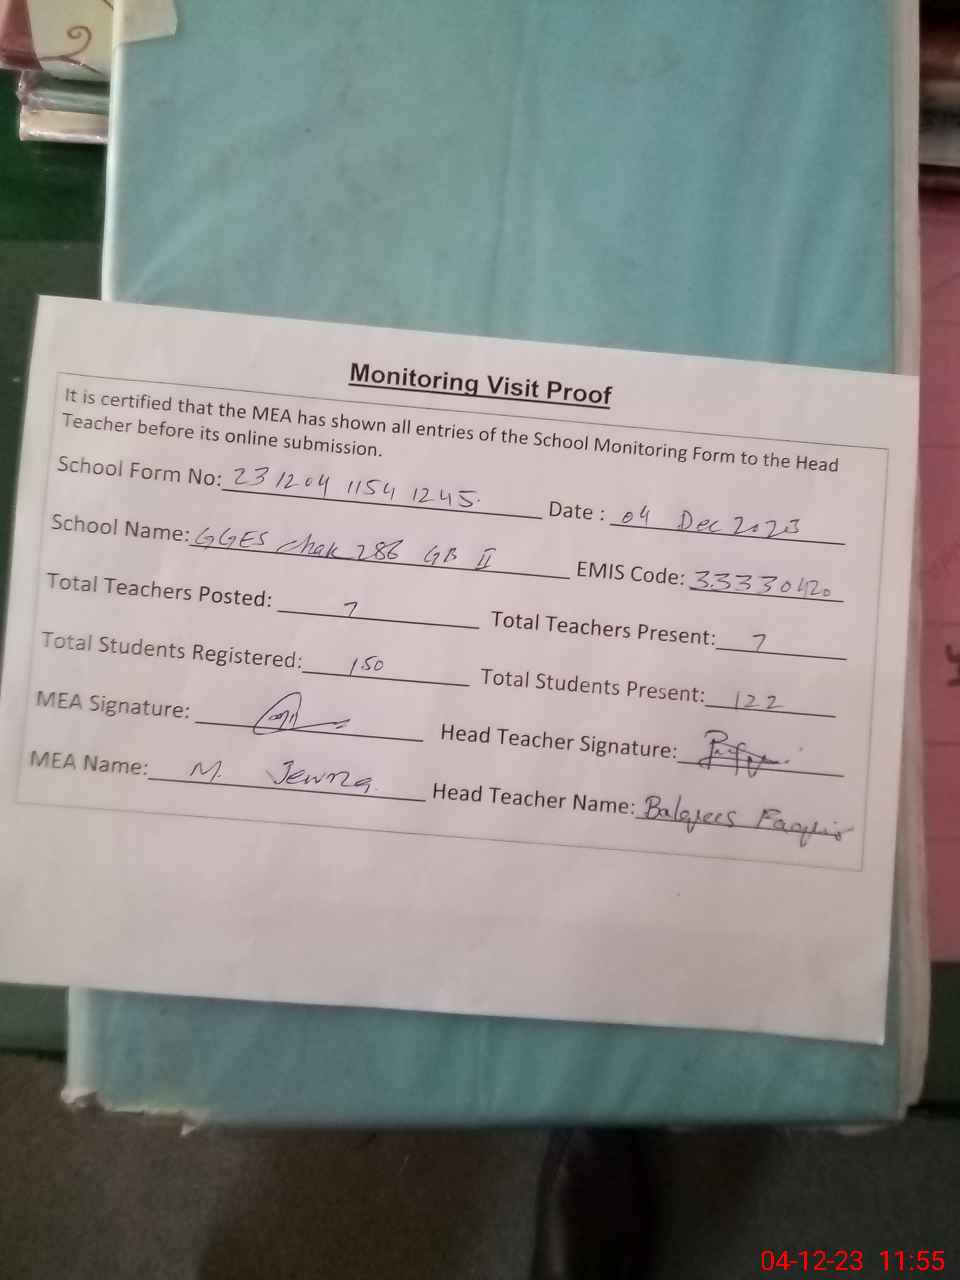 Monitoring Visit Proof
It is certified that the MEA has shown all entries of the School Monitoring Form to the Head
Teacher before its online submission.
School Form No: 231204 1154 1245. Date : 04 Dec 2023
School Name: GGES Chak 286 GB II EMIS Code: 33330420
Total Teachers Posted: 7 Total Teachers Present: 7
Total Students Registered: 150 Total Students Present: 122
MEA Signature: Head Teacher Signature:
MEA Name: M. Head Teacher Name: Balqees
04-12-23 11:55